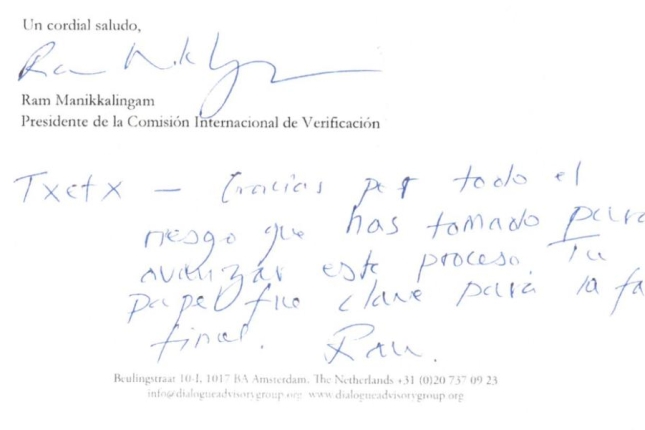 Un cordial saludo,
Ram Manikkalingam
Presidente de la Comisión Internacional de Verificación
Txetx — Gracias por todo el
riesgo que has tomado para
avanzar este proceso. Tu
papel fue clave para la fa
final. Ram.
Beulingstraat 10-I, 1017 BA Amsterdam, The Netherlands +31 (0)20 737 09 23
info@dialogueadvisorygroup.org www.dialogueadvisorygroup.org